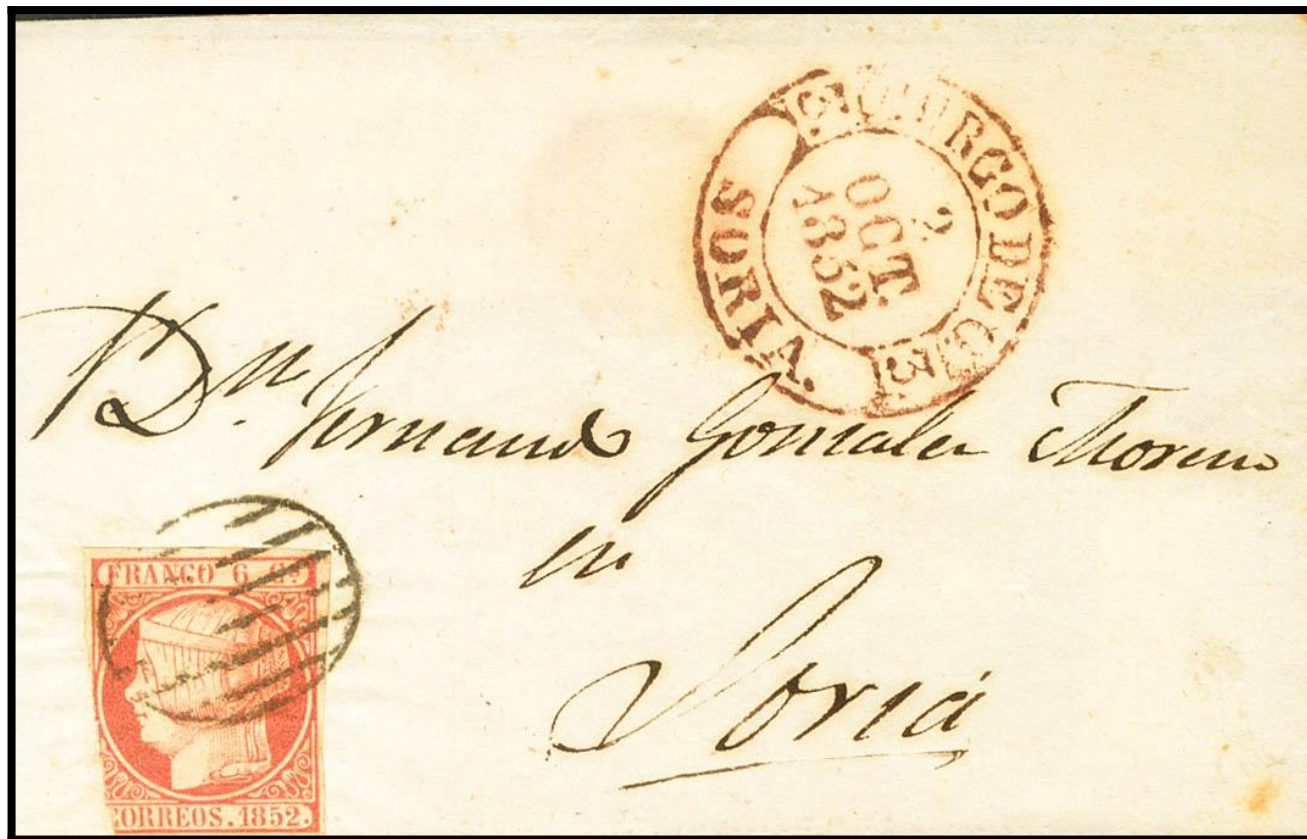 BURGO DE
SORIA
2
OCT.
1852
Dn. Fernando Gonzalez Moreno
en
Soria
FRANCO 6 Cs
CORREOS. 1852.